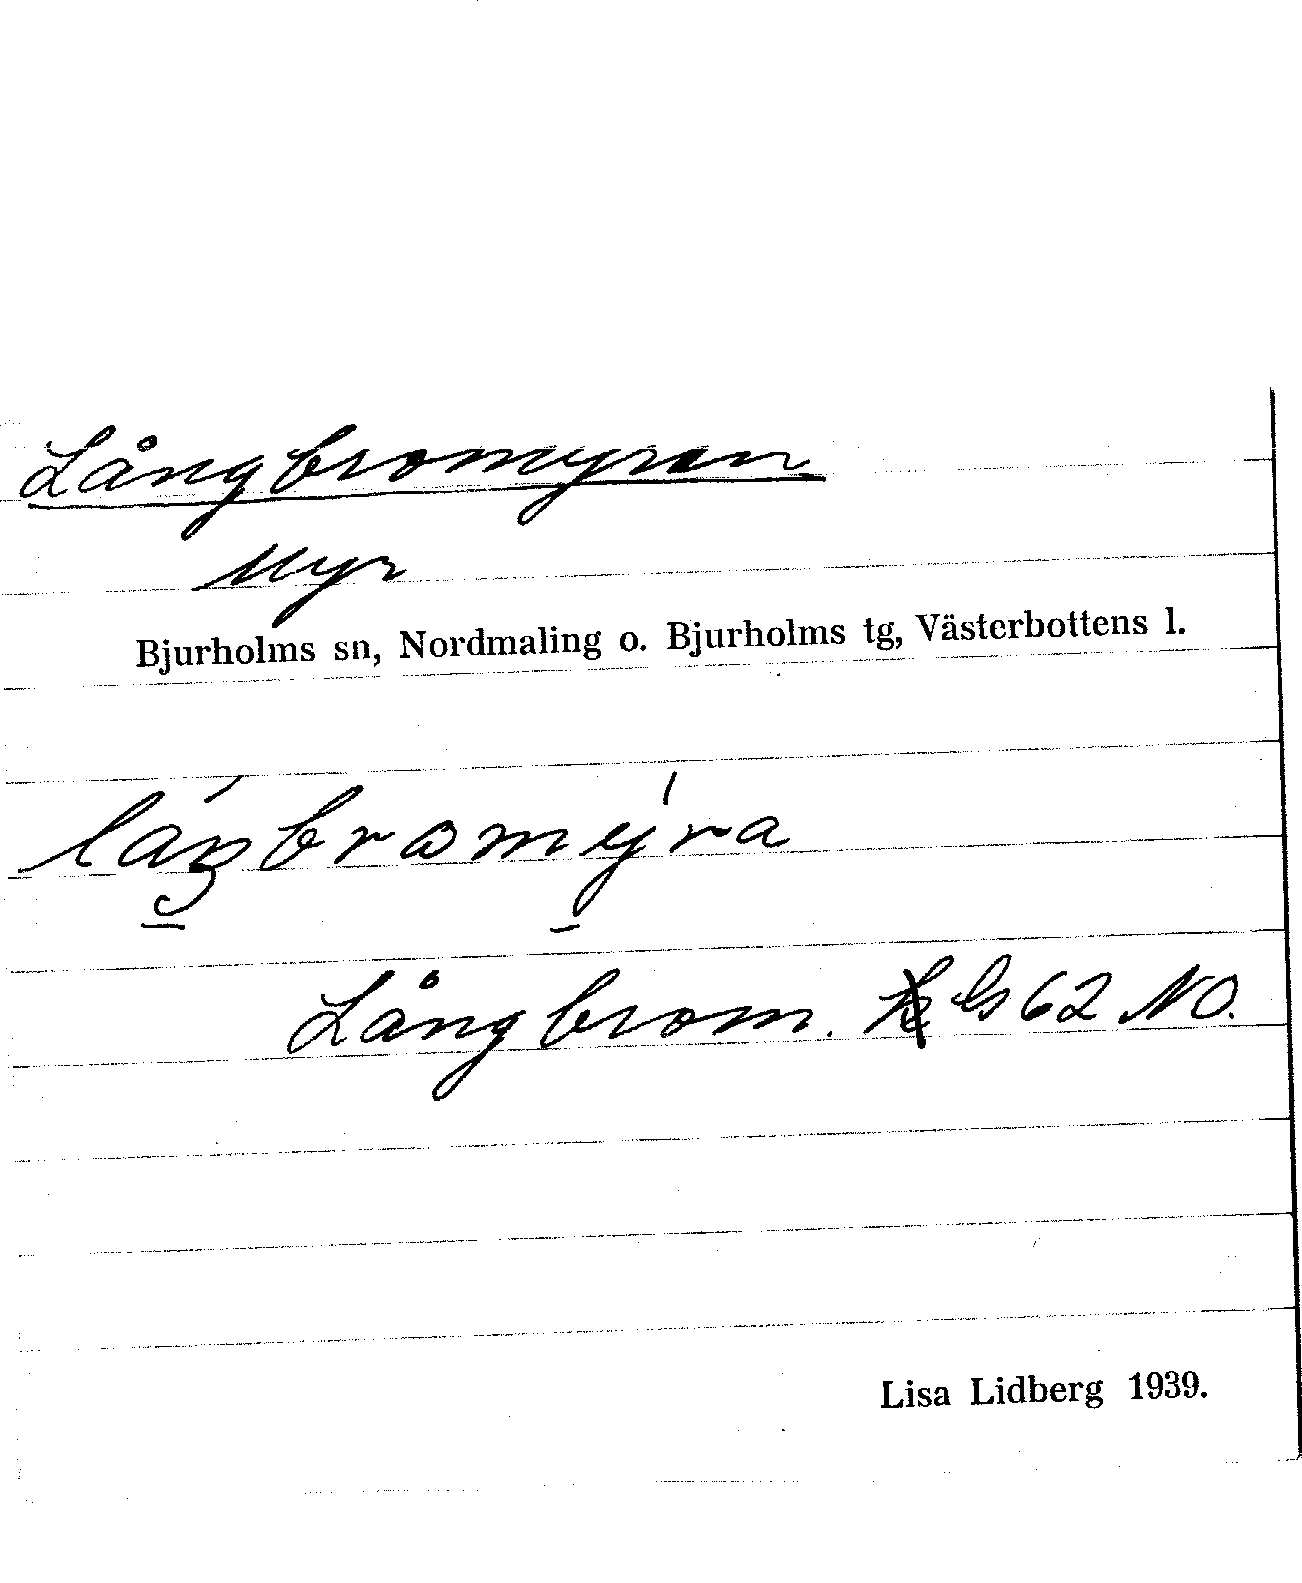 Långbromyran
Myr
Bjurholms sn, Nordmaling o. Bjurholms tg, Västerbottens l.
Långbrom. 62 NO.
Lisa Lidberg 1939.